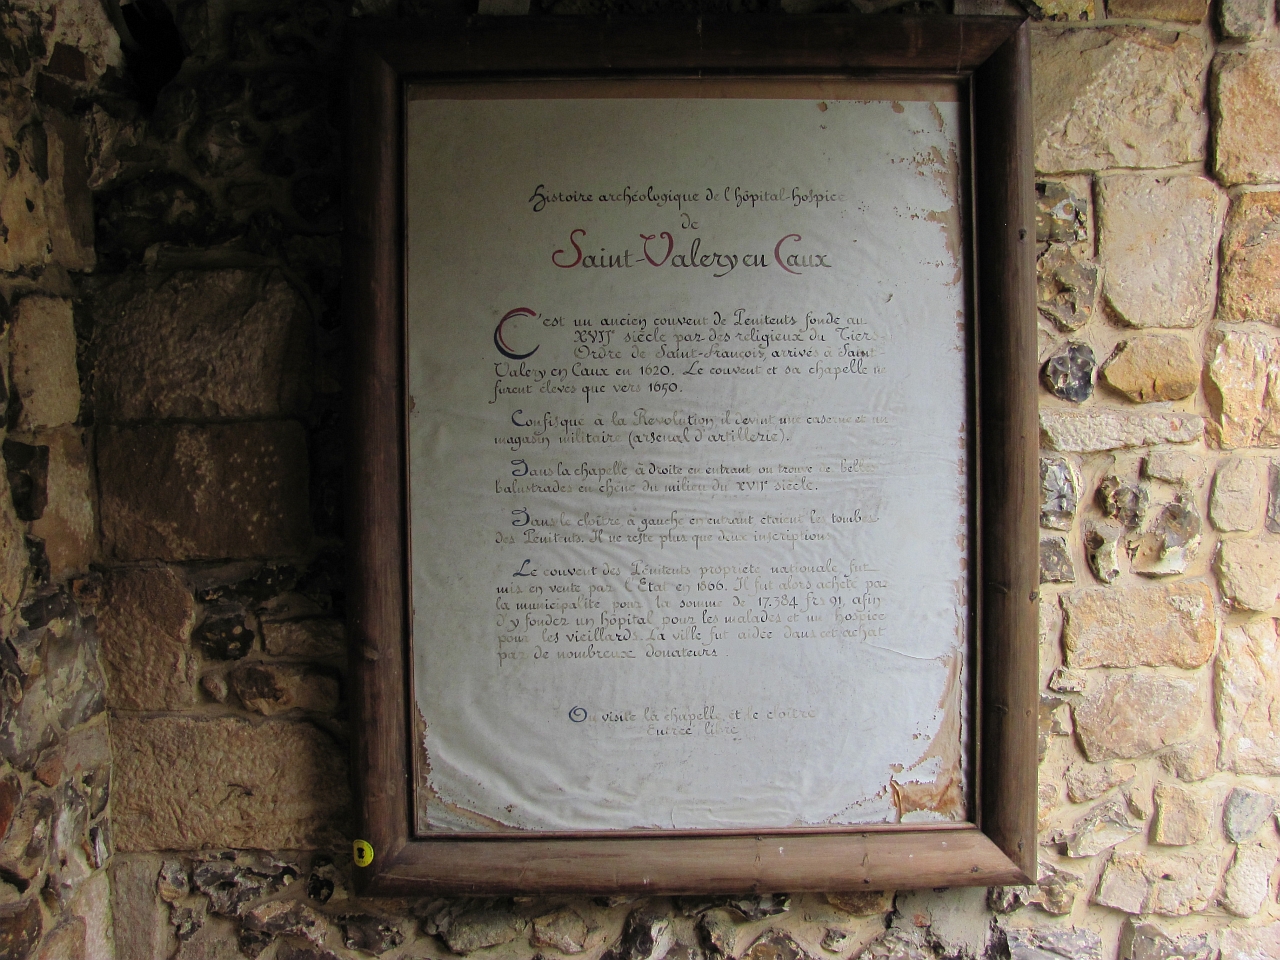 Histoire archéologique de l'hôpital-hospice
de
Saint-Valery en Caux
C'est un ancien couvent de Pénitents fondé au
XVIIe siècle par des religieux du Tiers-
Ordre de Saint-François, arrivés à Saint-
Valery en Caux en 1620. Le couvent et sa chapelle ne
furent élevés que vers 1650.
Confisqué à la Révolution il devint une caserne et un
magasin militaire (arsenal d'artillerie).
Dans la chapelle à droite en entrant on trouve de belles
balustrades en chêne du milieu du XVIIe siècle.
Dans le cloître à gauche en entrant étaient les tombes
des Pénitents. Il ne reste plus que deux inscriptions
Le couvent des Pénitents propriété nationale fut
mis en vente par l'Etat en 1866. Il fut alors acheté par
la municipalité pour la somme de 17.384 frs 91, afin
d'y fonder un hôpital pour les malades et un hospice
pour les vieillards. La ville fut aidée dans cet achat
par de nombreux donateurs.
On visite la chapelle et le cloître
Entrée libre